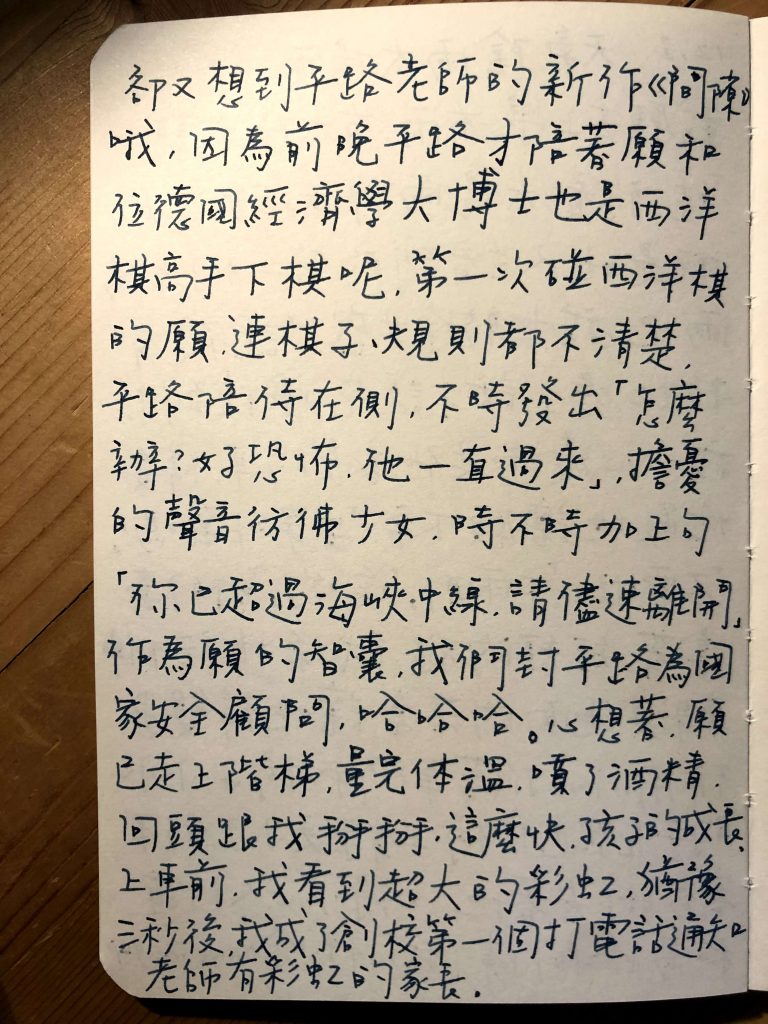 卻又想到平路老師的新作《間隙》
哦,因為前晚平路才陪著願和
位德國經濟學大博士也是西洋
棋高手下棋呢,第一次碰西洋棋
的願,連棋子、規則都不清楚,
平路陪侍在側,不時發出「怎麼
辦?好恐怖,他一直過來」,擔憂
的聲音彷彿少女,時不時加上句
「你已超過海峽中線,請儘速離開」
作為願的智囊,我們封平路為國
家安全顧問,哈哈哈。心想著,願
已走上階梯,量完体溫,噴了酒精,
回頭跟我掰掰,這麼快,孩子的成長、
上車前,我看到超大的彩虹,猶豫
三秒後,我成了創校第一個打電話通知
老師有彩虹的家長。